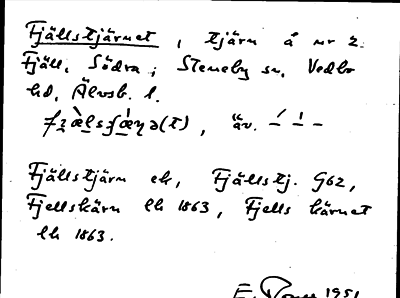 Fjällstjärnet, tjärn å nr 2.
Fjäll, Södra; Steneby sn, Vedbo
hd, Älvsb. l.
även. – – –
Fjällstjärn ek, Fjällstj. G62,
Fjellskärn lh 1863, Fjells kärnet
lh 1863.
E. 1951